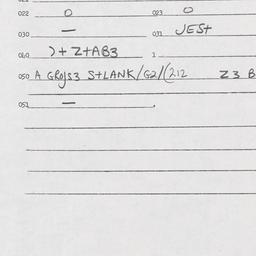 022 0 023 0
030 — 031 JES+
040 )+ Z+AB3 1
050 A GR0JS3 S+LANK/G2/(212 Z3 B
051 —